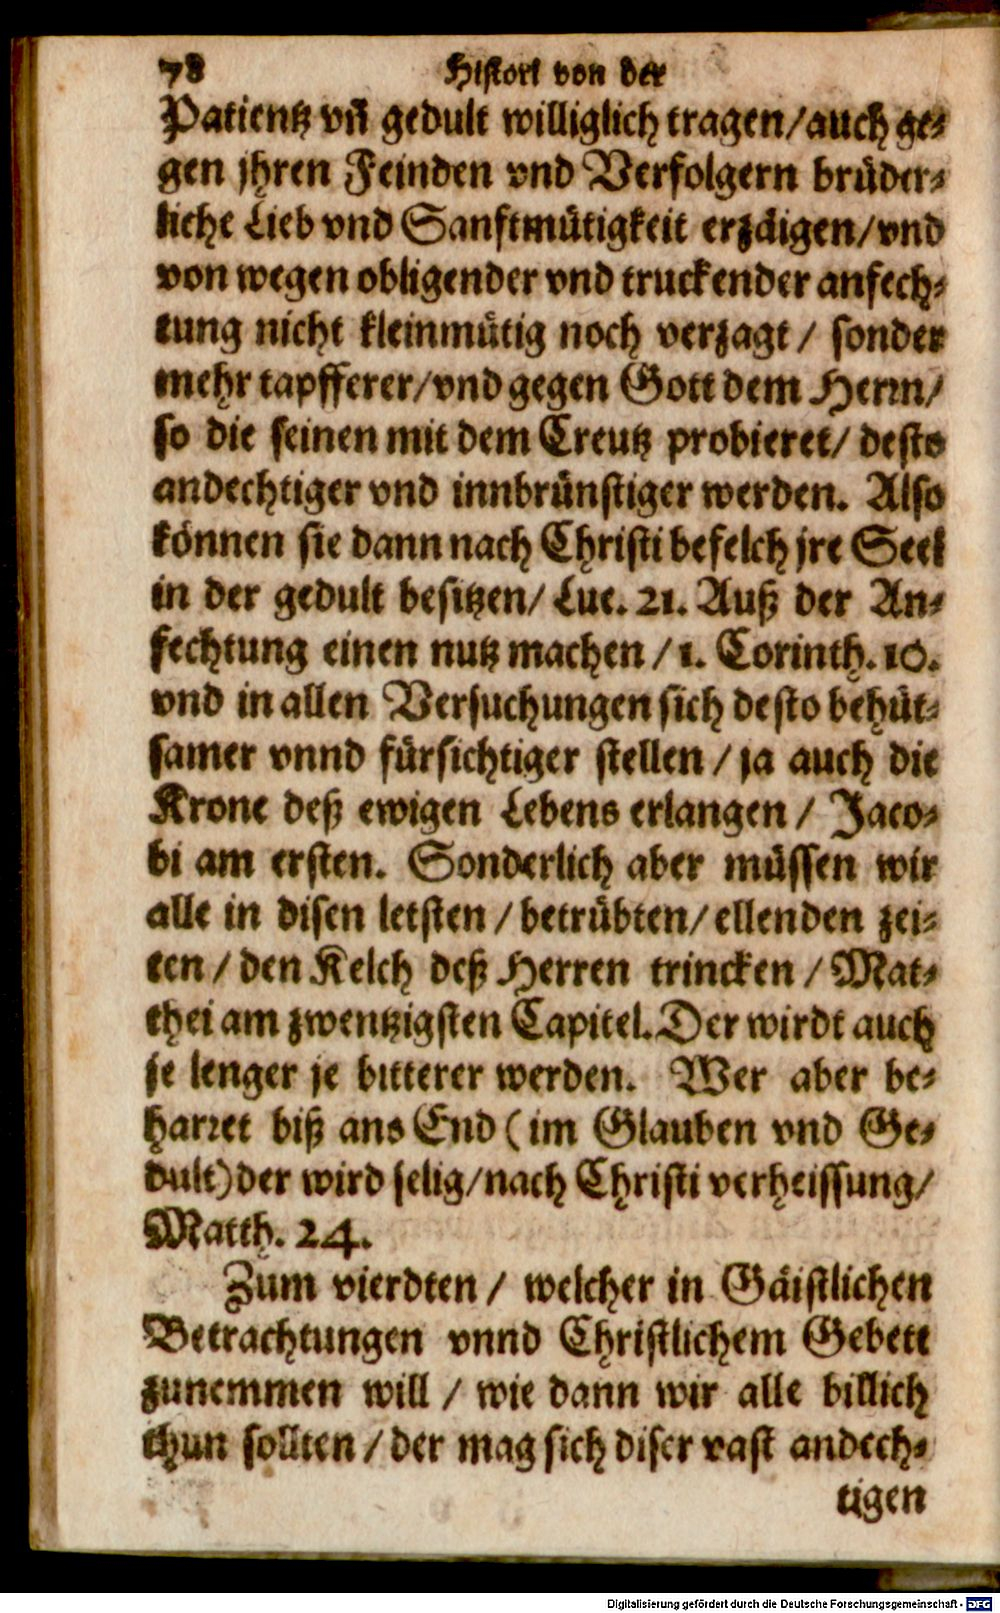 78 Histori von der
Patientz vñ gedult williglich tragen/auch ge-
gen jhren Feinden vnd Verfolgern brüder-
liche Lieb vnd Sanftmütigkeit erzäigen/vnd
von wegen obligender vnd truckender anfech-
tung nicht kleinmütig noch verzagt/ sonder
mehr tapfferer/vnd gegen Gott dem Herrn/
so die seinen mit dem Creutz probieret/ desto
andechtiger vnd innbrünstiger werden. Also
können sie dann nach Christi befelch jre Seel
in der gedult besitzen/ Luc. 21. Auß der An-
fechtung einen nutz machen/ 1. Corinth. 10.
vnd in allen Versuchungen sich desto behüt-
samer vnnd fürsichtiger stellen/ ja auch die
Krone deß ewigen Lebens erlangen/ Jaco-
bi am ersten. Sonderlich aber müssen wir
alle in disen letsten/ betrübten/ ellenden zei-
ten/ den Kelch deß Herren trincken/ Mat-
thei am zwentzigsten Capitel. Der wirdt auch
je lenger je bitterer werden. Wer aber be-
harret biß ans End (im Glauben vnd Ge-
dult) der wird selig/nach Christi verheissung/
Matth. 24.
Zum vierdten/ welcher in Gäistlichen
Betrachtungen vnnd Christlichem Gebett
zunemmen will/ wie dann wir alle billich
thun sollten/ der mag sich diser vast andech-
tigen
Digitalisierung gefördert durch die Deutsche Forschungsgemeinschaft - DFG